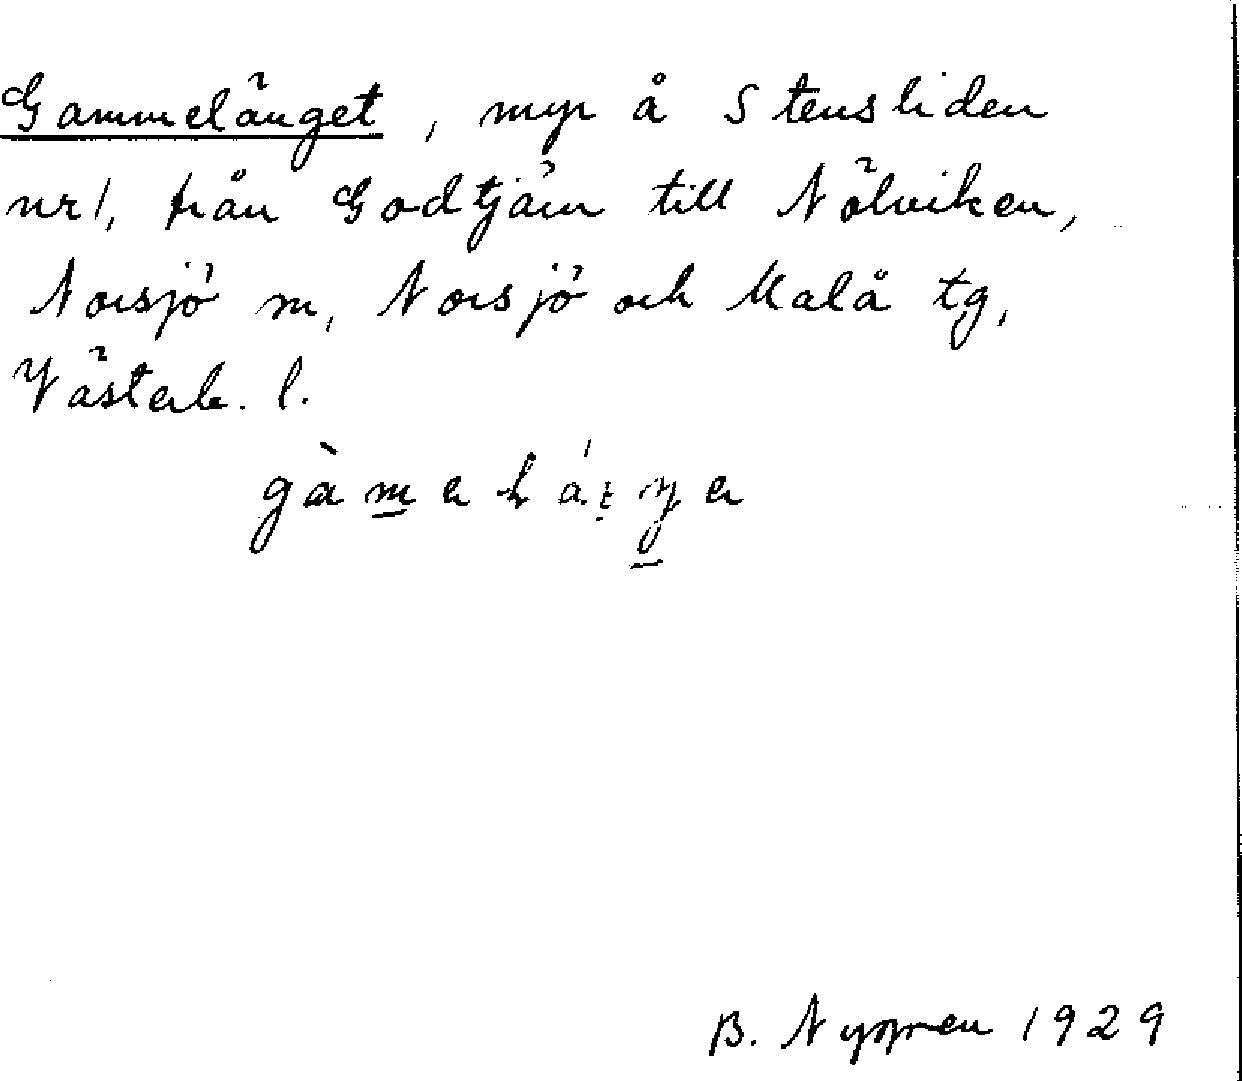 Gammelänget, myr å Stensliden
nr 1, från Godtjärn till Nölviken,
Norsjö m, Norsjö och Malå tg,
Västerb. l.
B. Nygren 1929